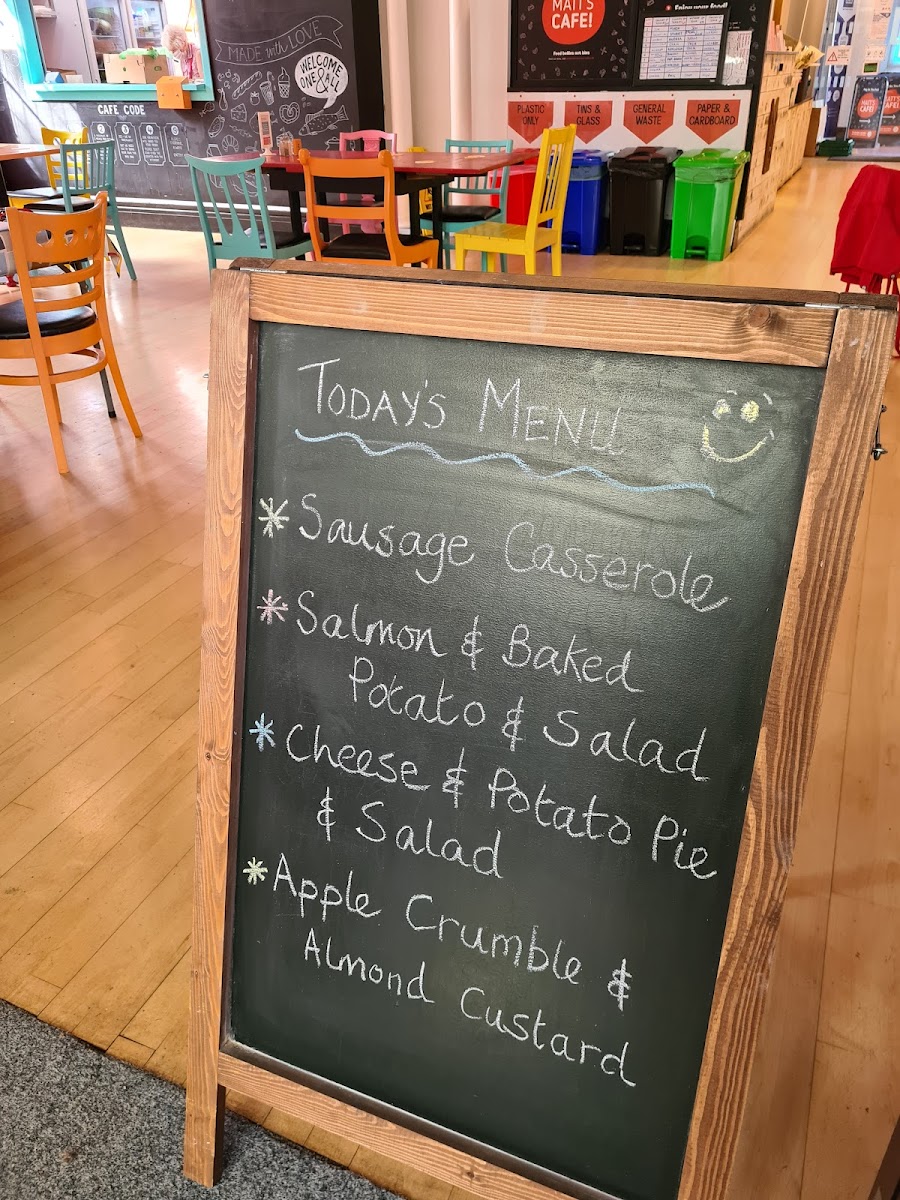 MADE with LOVE
WELCOME
ONE & ALL
CAFE CODE
MATT'S
CAFE!
PLASTIC
ONLY
TINS &
GLASS
GENERAL
WASTE
PAPER &
CARDBOARD
TODAY'S MENU
* Sausage Casserole
* Salmon & Baked
Potato & Salad
* Cheese & Potato Pie
& Salad
* Apple Crumble &
Almond Custard